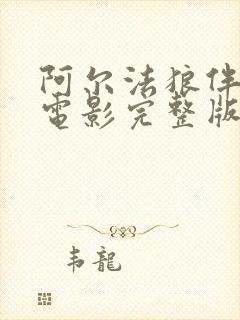 阿尔法狼伴
電影完整版
韦龍